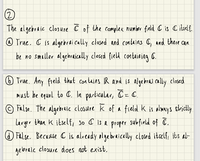 ②
The algebraic closure C̅ of the complex number field C is C itself.
ⓐ True. C is algebraically closed and contains C, and there can
be no smaller algebraically closed field containing C.
ⓑ True. Any field that contains R and is algebraically closed
must be equal to C. In particular, C̅ = C.
ⓒ False. The algebraic closure K̅ of a field K is always strictly
larger than K itself, so C is a proper subfield of C̅.
ⓓ False. Because C is already algebraically closed itself, its al-
gebraic closure does not exist.